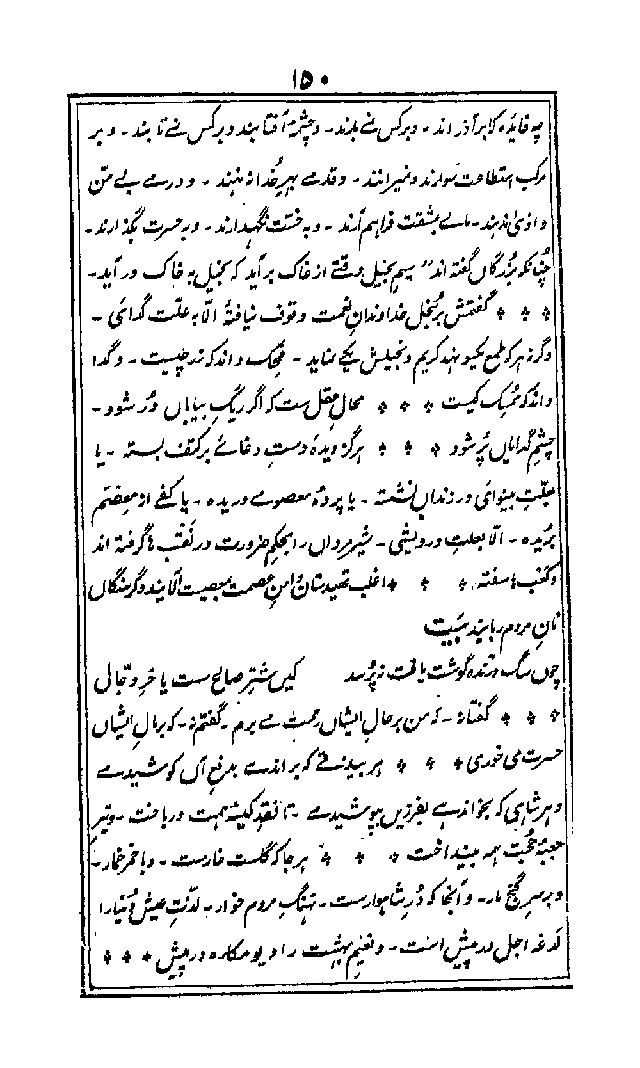 ۱۵۰
چه فایده کابر آذر اند - و بر کس نے بارند - و چشمۂ آفتابند و بر کس نے تابند - و بر
مرکب استطاعت سوارند و نمیرانند - و قدمے بہر خدا ننہند - و درمے بے من
و اذیٰ ندہند - مالے بمشقت فراہم آرند - و بہ خست نگہدارند - و بہ حسرت بگذارند -
چنانکہ بزرگاں گفته اند" سیم بخیل وقتے از خاک بر آید کہ بخیل بہ خاک در آید -
* * * گفتمش بر بخل خداوندان نعمت وقوف نیافتۂ الّا بہ علت گدائی -
وگرنہ ہر کہ طمع یکسو نہد کریم و بخیلش یکے نماید - محک داند کہ زر چیست - و گدا
داند کہ ممسک کیست * * * محال عقل ست کہ اگر ریگ بیاباں دُر شود -
چشم گدایاں پُر شود * * * ہرگز دیدۂ دست دغائے بر کتف بستہ - یا
بعلت بینوائی در زنداں نشستہ - یا پردۂ معصومے دریده - یا کفے از معصم
بریده - الّا بعلت درویشی - شیر مرداں را بحکم ضرورت در نقبہا گرفتہ اند
و کعبہا سفتہ * * * اغلب تہیدستاں دامن عصمت بمعصیت آلایند و گرسنگاں
نان مردم ربایند بیت
چوں سگ درندہ گوشت یافت نپرسد کیں شتر صالح ست یا خر دجال
* * * گفتا نہ - کہ من بر حال ایشاں رحمت مے برم - گفتم نہ - کہ بر مال ایشاں
حسرت می خوری * * * ہر بیدقے کہ براندے بدفع آں کوشیدمے
و ہر شاہی کہ بخواندے بفرزیں بپوشیدمے - تا نقد کیسۂ ہمت در باخت - و تیر
جعبۂ حجت ہمہ بینداخت * * * ہر جا کہ گلست خارست - و با خمر خمار -
و بر سر گنج مار - و آنجا کہ دُر شاہوار ست - نہنگ مردم خوار - لذت عیش دنیا را
لدغۂ اجل در پیش است - و نعیم بہشت را دیو مکارہ در پیش * * *